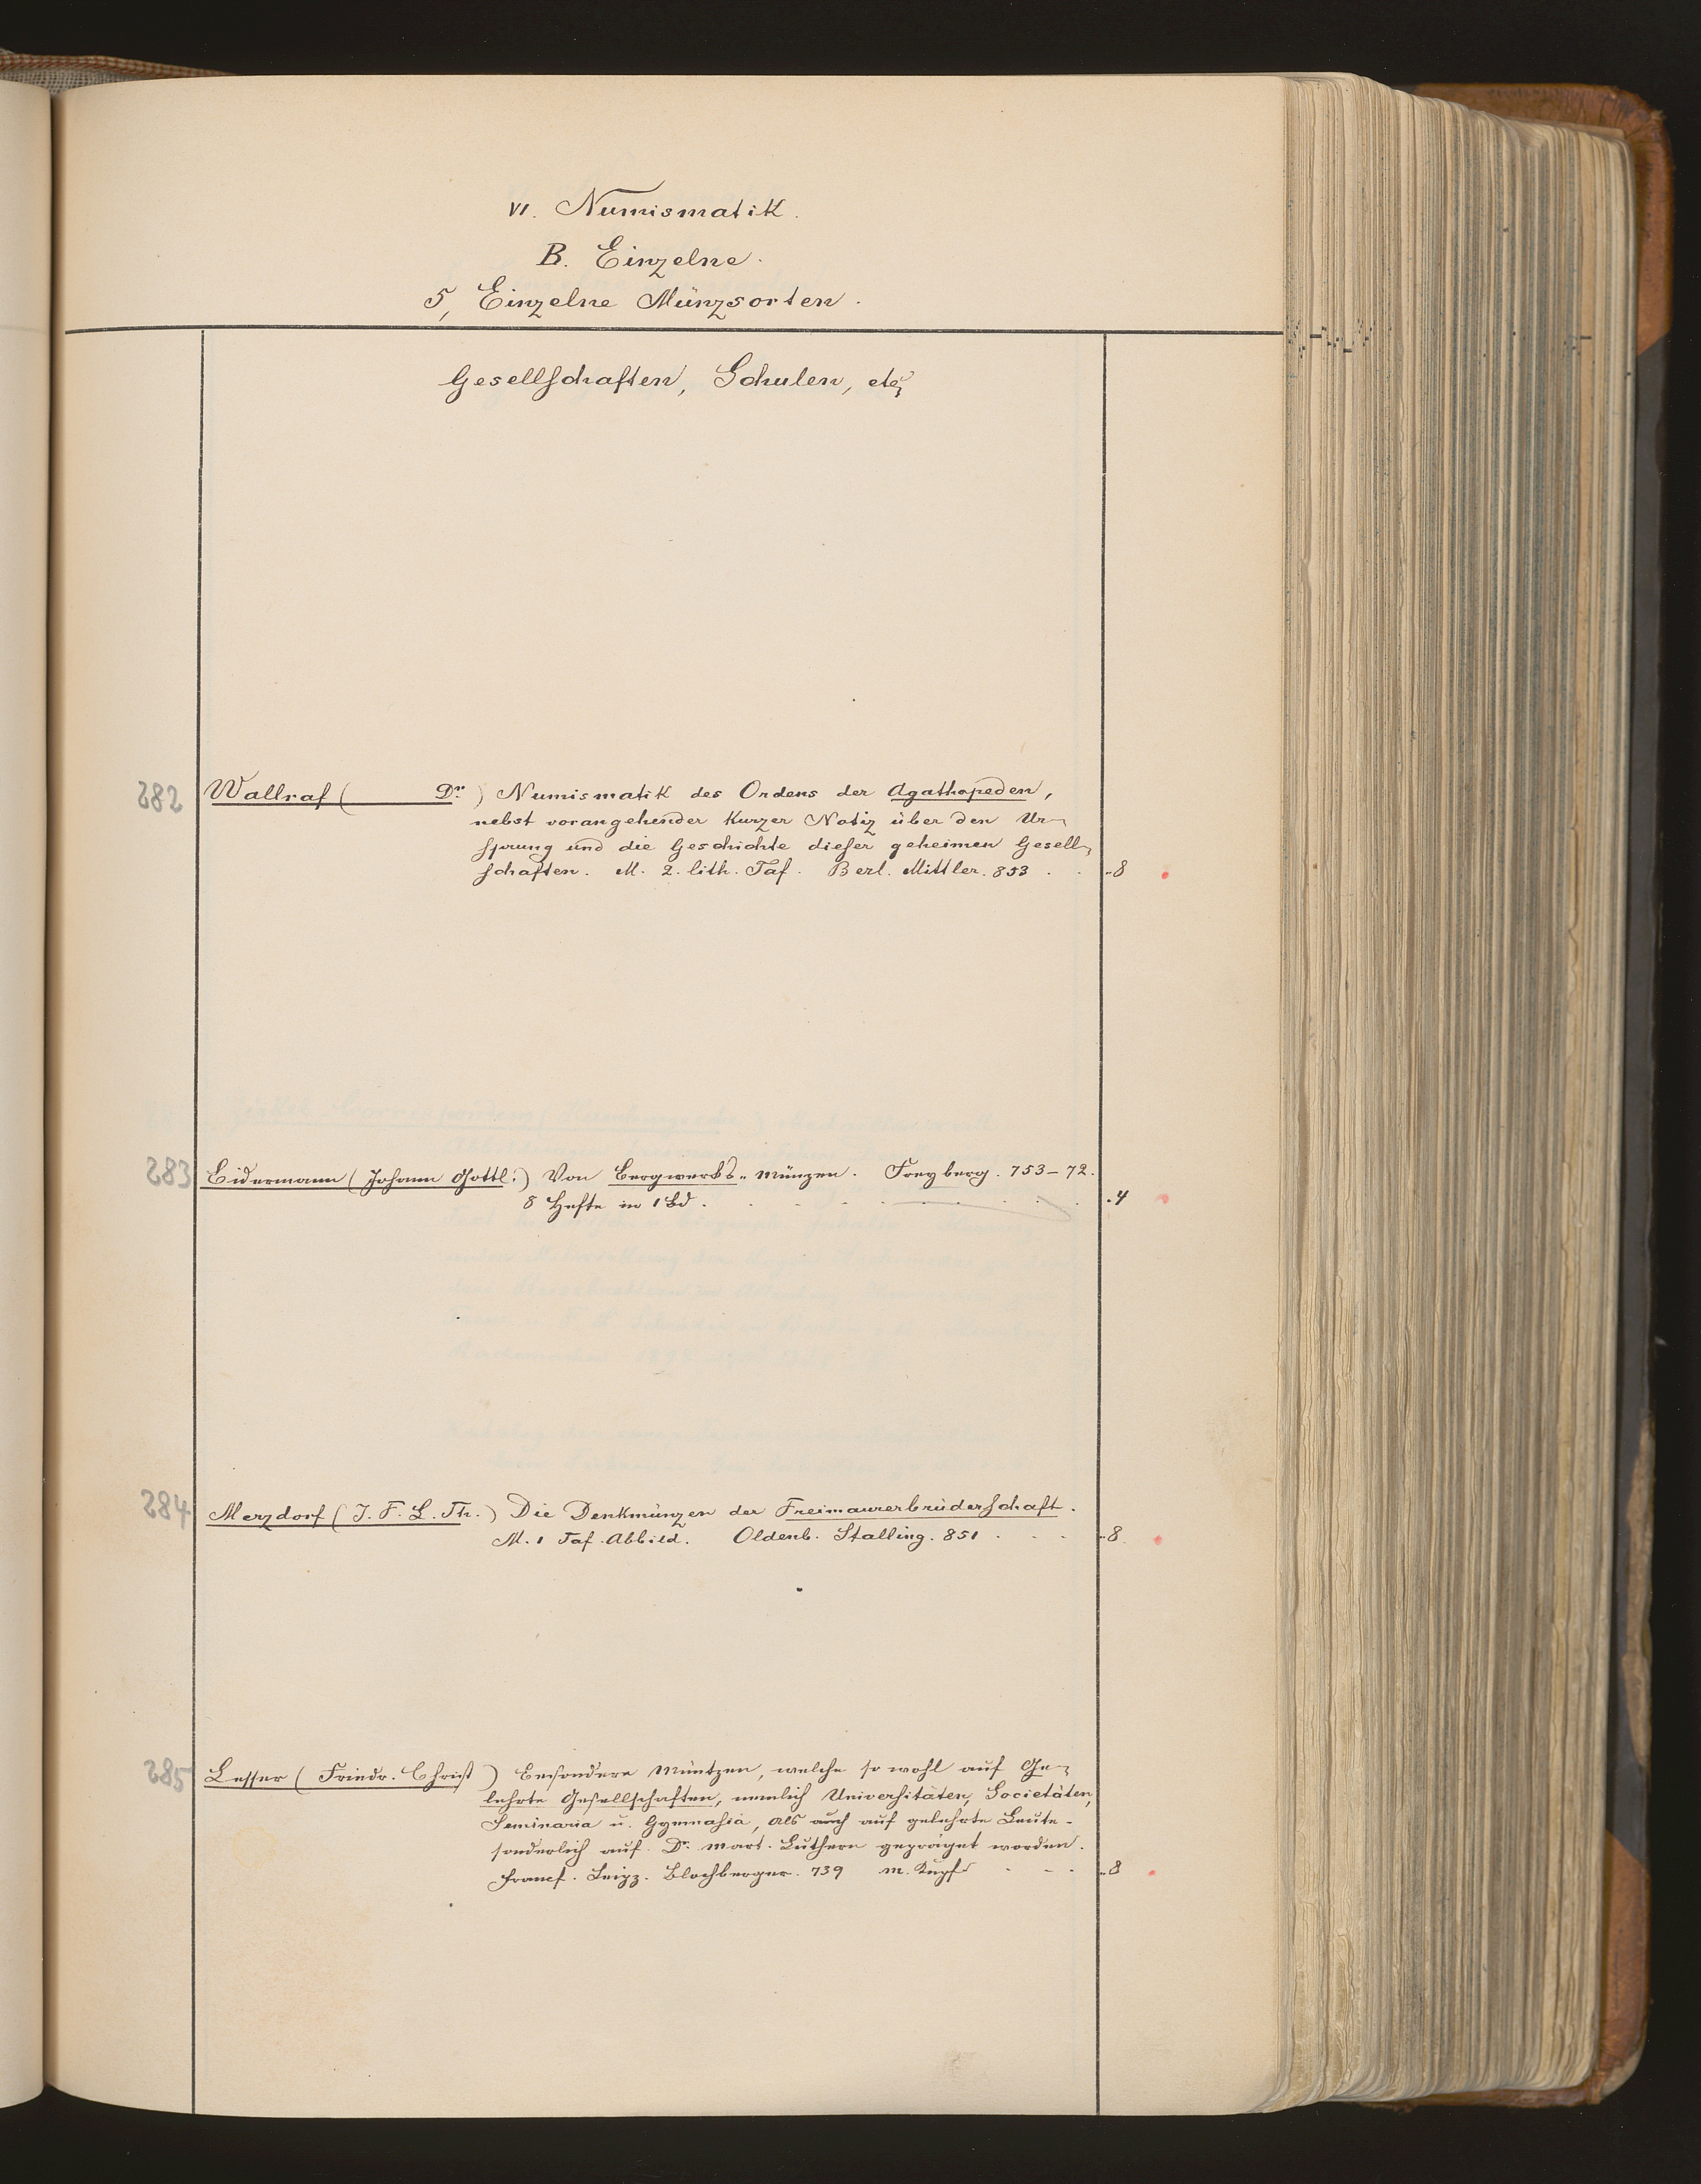 VI. Numismatik.
B. Einzelne.
5, Einzelne Münzsorten.
Gesellschaften, Schulen, etc
282 Wallraf ( Dr. ) Numismatik des Ordens der Agathopeden,
nebst vorangehender kurzer Notiz über den Ur-
sprung und die Geschichte dieser geheimen Gesell-
schaften. M. 2. lith. Taf. Berl. Mittler. 853 . . „8
283 Bidermann (Johann Gottl:) Von Bergwerks-Münzen. Freyberg. 753-72.
8 Hefte in 1 Bd. . . . . . . . . .4
284 Merzdorf (J. F. L. Th.) Die Denkmünzen der Freimaurerbrüderschaft.
M. 1 Taf. Abbild. Oldenb. Stalling. 851 . . . „8.
285 Lesser ( Friedr. Christ ) Besondere Müntzen, welche so wohl auf Ge-
lehrte Gesellschaften, nemlich Universitäten, Societäten,
Seminaria u. Gymnasia, als auch auf gelehrte Leute-
sonderlich auf Dr. Mart. Luthern gepräget worden.
Francf. Leipz. Blochberger. 739 m. Kupf . . . „8